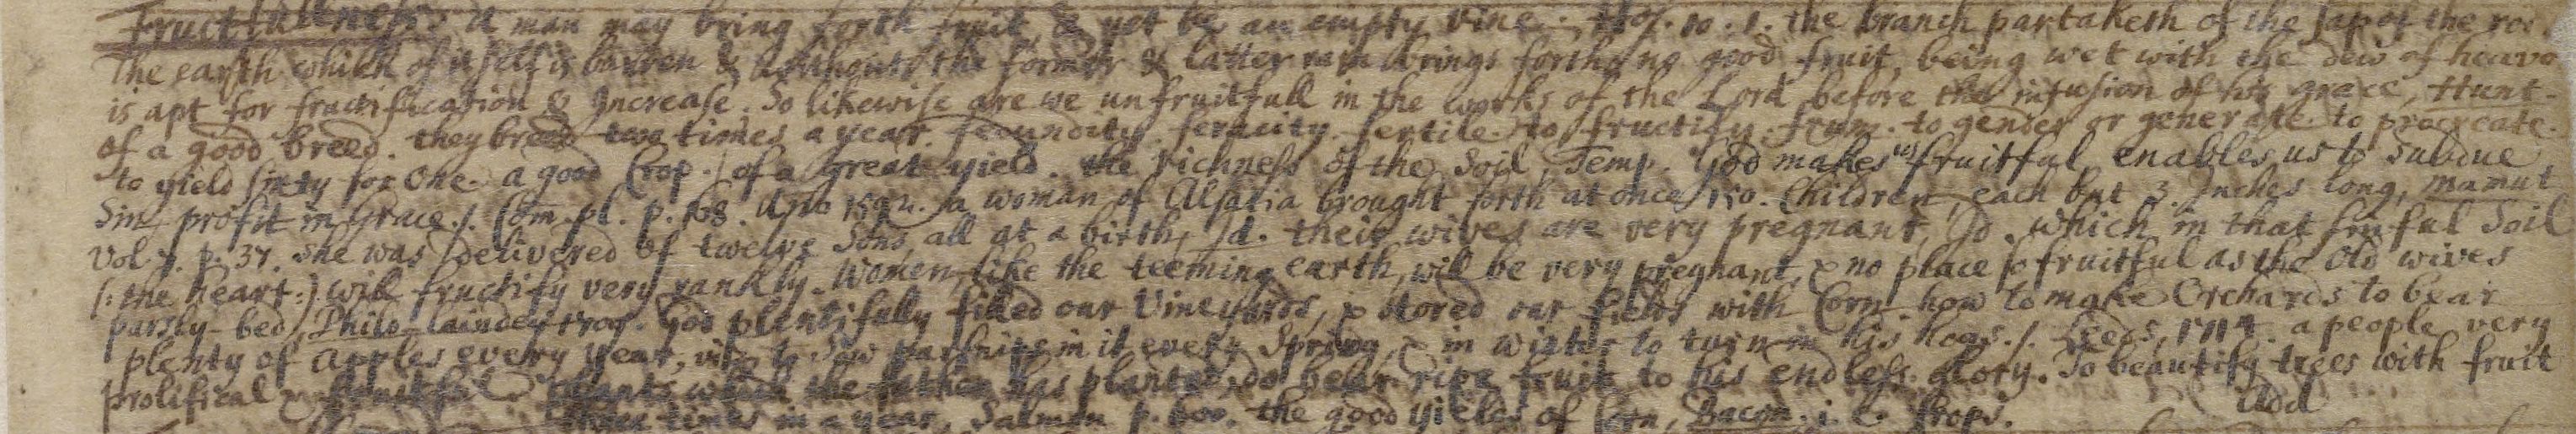 Fructfullness. A man may bring forth fruit, & yet be an empty vine. Hos. 10. 1. the branch partaketh of the sap of the roo
The earth which of it self is barren & without the former & latter rain brings forth no good fruit, being wet with the dew of heave
is apt for fructification & Increase. So likewise are we unfruitfull in the works of the Lord before the infusion of his grace, Hunt.
of a good breed. they breed two times a year. fecundity. feracity. fertile. to fructify. frum. to gender or generate. to procreate.
to yield sixty for one. a good Crop. / of a great yield. the richness of the Soil, Temp. God makes us fruitful, enables us to subdue
Sin, profit in Grace. /. Com. pl. p. 168. Ano 1592. a woman of Alsatia brought forth at once 150. Children, each but 3. Inches long, mamut
Vol. 7. p. 37. she was delivered of twelve Sons, all at a birth, Id. their wives are very pregnant, Id. which in that sinful Soil
(: the heart :) will fructify very rankly. Women, like the teeming earth, will be very pregnant, & no place so fruitful as the old wives
parsly-bed, Philo- God plentifully filled our Vineyards, & stored our fields with Corn. how to make Orchards to bear
plenty of apples every year, viz. to Sow parsnips in it every Spring, & in winter to turn in his Hogs. /. Leeds, 1714. a people very
prolifical & fruitful. plants which the father has planted, do bear ripe fruit to his endless glory. To beautify trees with fruit
three times in a year, Salmon p. 600. the good yields of Corn, Bacon. i. e. Props. Add